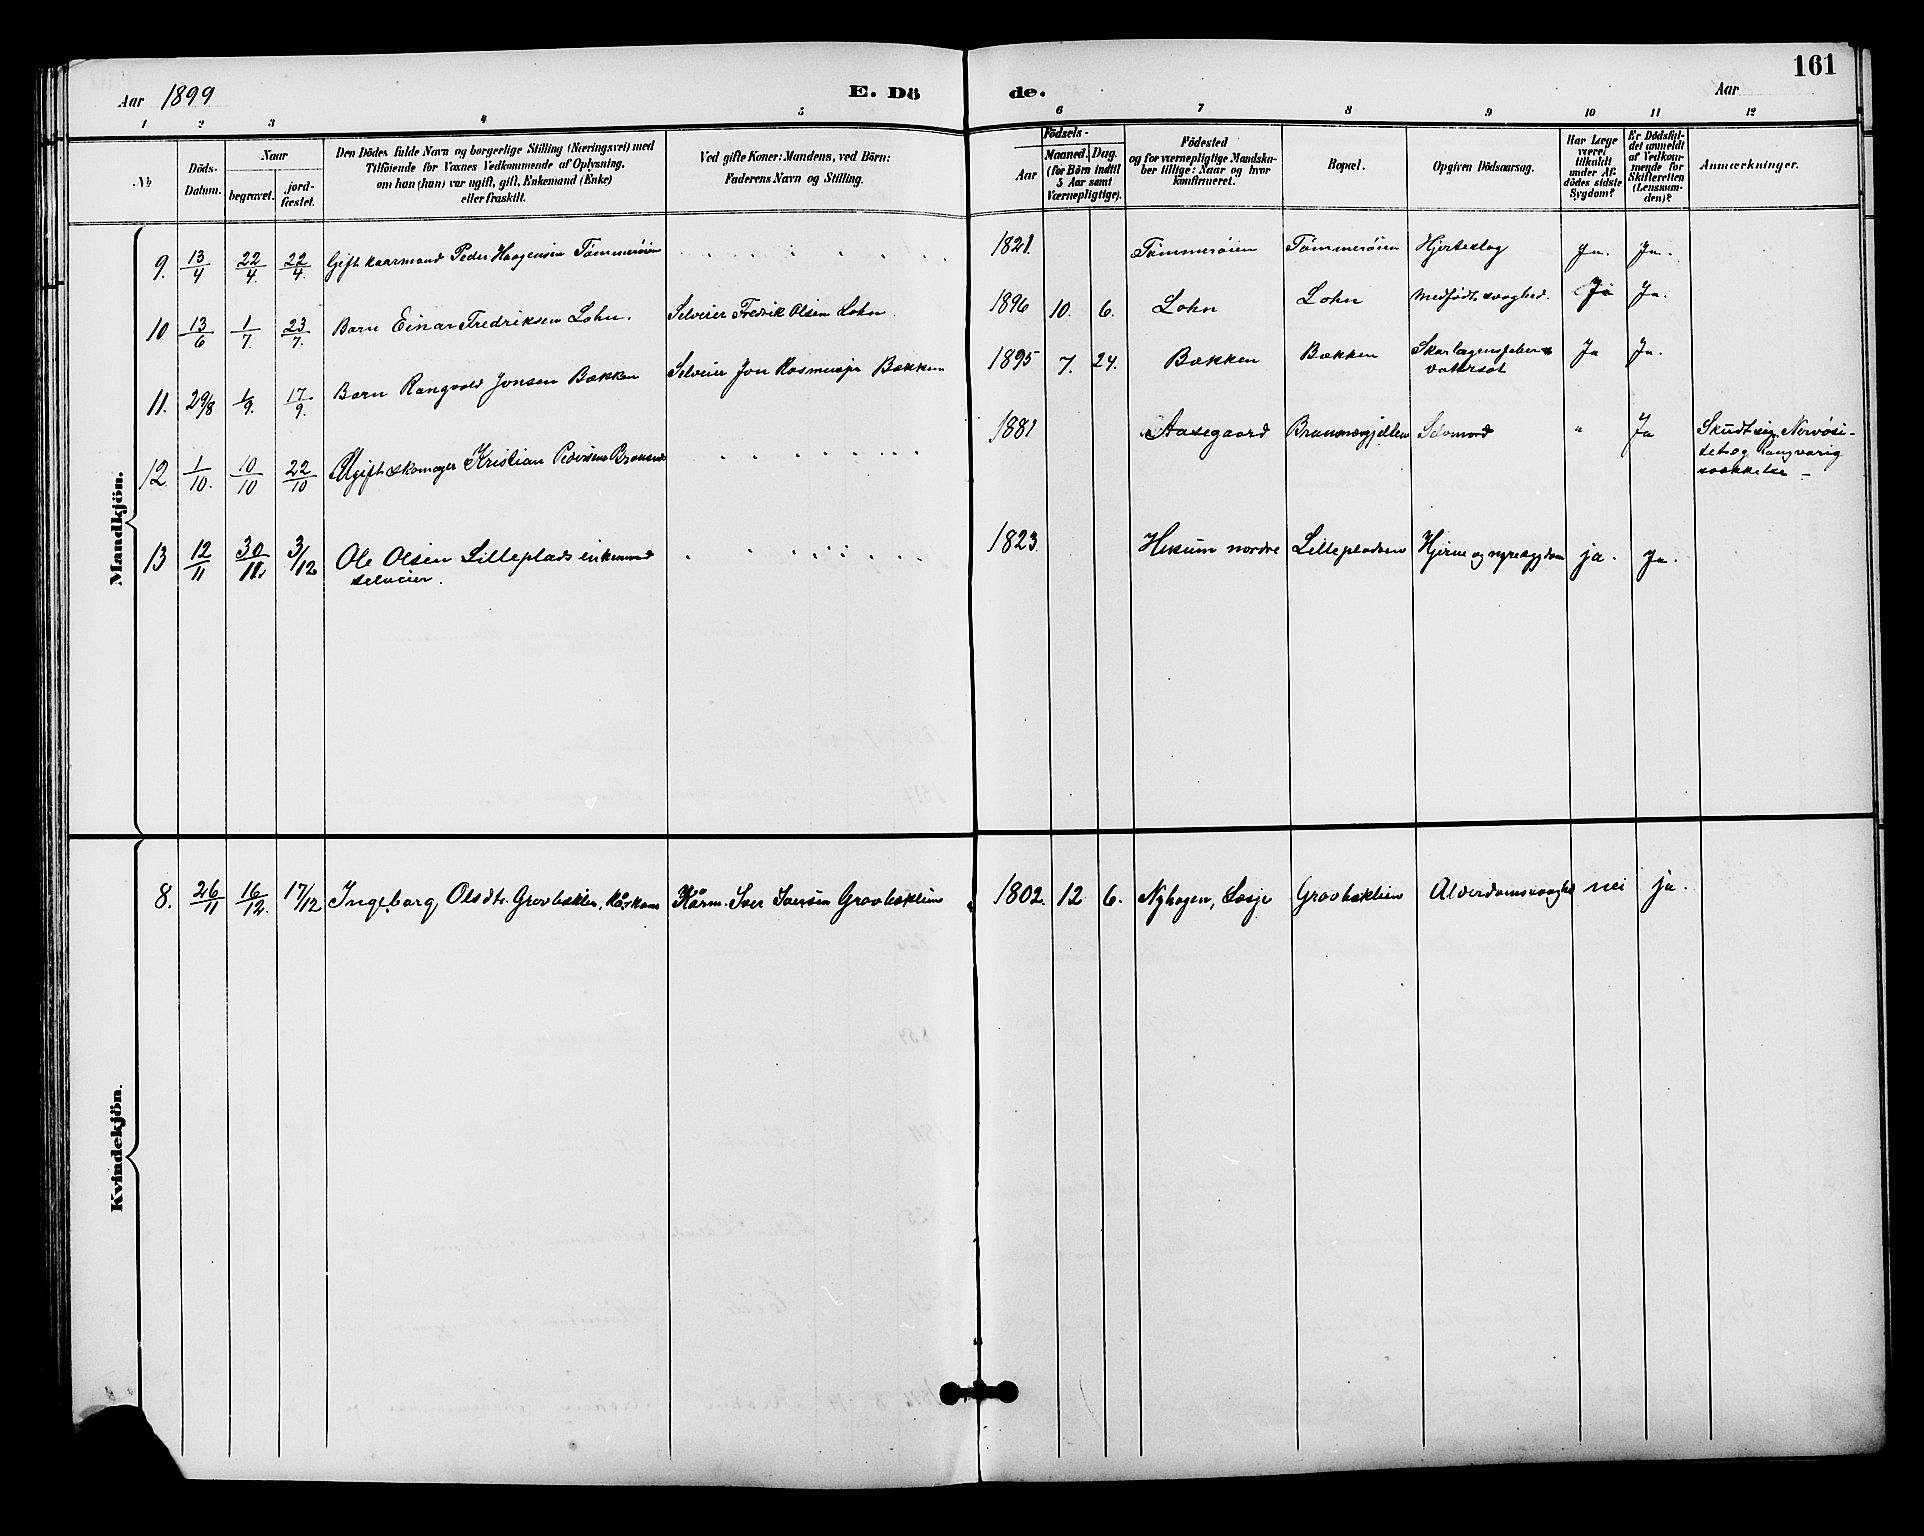 161
Aar 1899 E. Dö de. Aar
1 2 3 4 5 6 7 8 9 10 11 12
No
Döds-
Datum.
Naar
begravet.
jord-
fæstet.
Den Dödes fulde Navn og borgerlige Stilling (Næringsvei) med
Tilföiende for Voxnes Vedkommende af Oplysning,
om han (hun) var ugift, gift, Enkemand (Enke)
eller fraskilt.
Ved gifte Koner: Mandens, ved Börn:
Faderens Navn og Stilling.
Födsels-
Aar
Maaned. Dag.
(for Börn indtil
5 Aar samt
Værnepligtige).
Födested
og for værnepligtige Mandska-
ber tillige: Naar og hvor
konfirmeret.
Bopæl.
Opgiven Dödsaarsag.
Har Læge
været
tilkaldt
under Af-
dödes sidste
Sygdom?
Er Dödsfal-
det anmeldt
af Vedkom-
mende for
Skifteretten
(Lensman-
den)?
Anmærkninger.
Mandkjön.
9. 13/4 22/4. 22/4. Gift kaarmand Peder Haagensen Tømmerøien 1821. Tømmerøien Tømmerøien Hjerteslag Ja. Ja.
10 13/6 1/7. 23/7. Barn Einar Fredriksen Lohn. Selveier Fredrik Olsen Lohn. 1896 10. 6. Lohn Lohn Medfødt svaghed. Ja Ja.
11. 29/8 1/9. 17/9. Barn Rangvald Jonsen Bakken Selveier Jon Bakken 1895 7. 24. Bækken Bækken Skarlagensfeber
vattersot Ja Ja.
12. 1/10. 10/10 22/10 Ugift skomager Kristian Pedersen 1881 Aasegaard Selvmord " Ja Skudt sig. Nervøsi-
tet og langvarig
13 12/11 30/11. 3/12 Ole Olsen Lilleplads enkemand
selveier. 1823. Hesum nordre Lillepladsen Hjerne og nyresygdom ja. Ja.
Kvindekjön.
8. 26/11 16/12. 17/12 Ingeborg Olsdtr. Kårm. Iver Iversen 1802. 12 6. Nyhagen, Lesje Alderdomssvaghed nei ja.